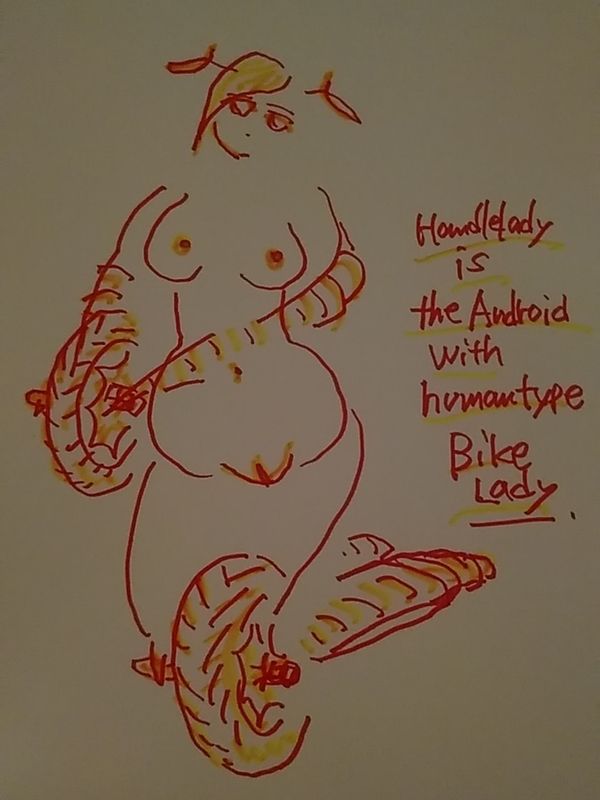 Handlelady
is
the Android
with
humantype
Bike
Lady.